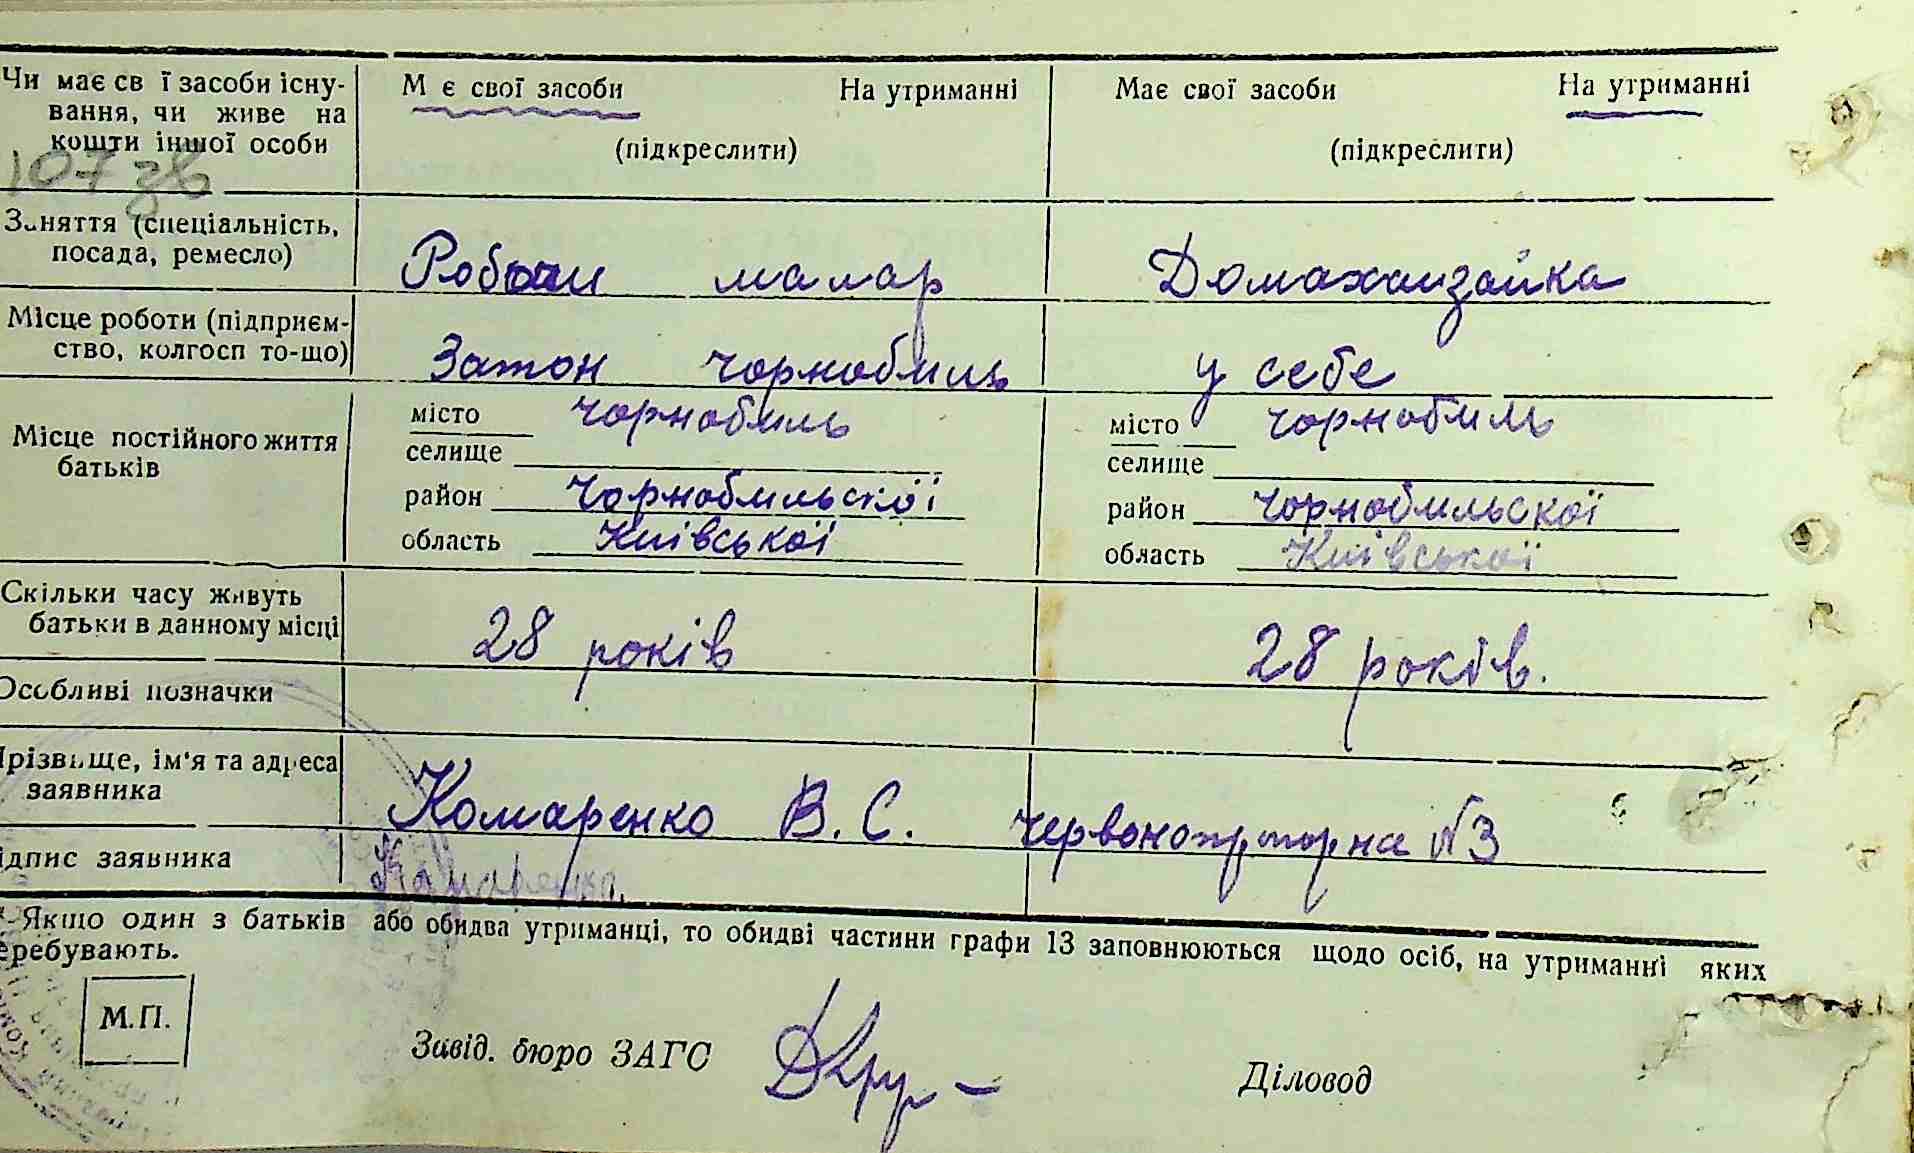 Чи має св ї засоби існу-
вання, чи живе на
кошти іншої особи
М є свої засоби На утриманні
(підкреслити)
Має свої засоби На утриманні
(підкреслити)
107 зв
Заняття (спеціальність,
посада, ремесло)
Робочи маляр
Домахазайка
Місце роботи (підприєм-
ство, колгосп то-що)
Затон чорнобиль
у себе
Місце постійного життя
батьків
місто чорнобиль
селище
район Чорнобильскої
область Київської
місто чорнобиль
селище
район чорнобильскої
область Київської
Скільки часу живуть
батьки в данному місці
28 років
28 років.
Особливі позначки
Прізвище, ім'я та адреса
заявника
Комаренко В. С. червонопрапорна №3
ідпис заявника
Комаренко.
Якщо один з батьків або обидва утриманці, то обидві частини графи 13 заповнюються щодо осіб, на утриманні яких
еребувають.
М.П.
Завід. бюро ЗАГС
Діловод